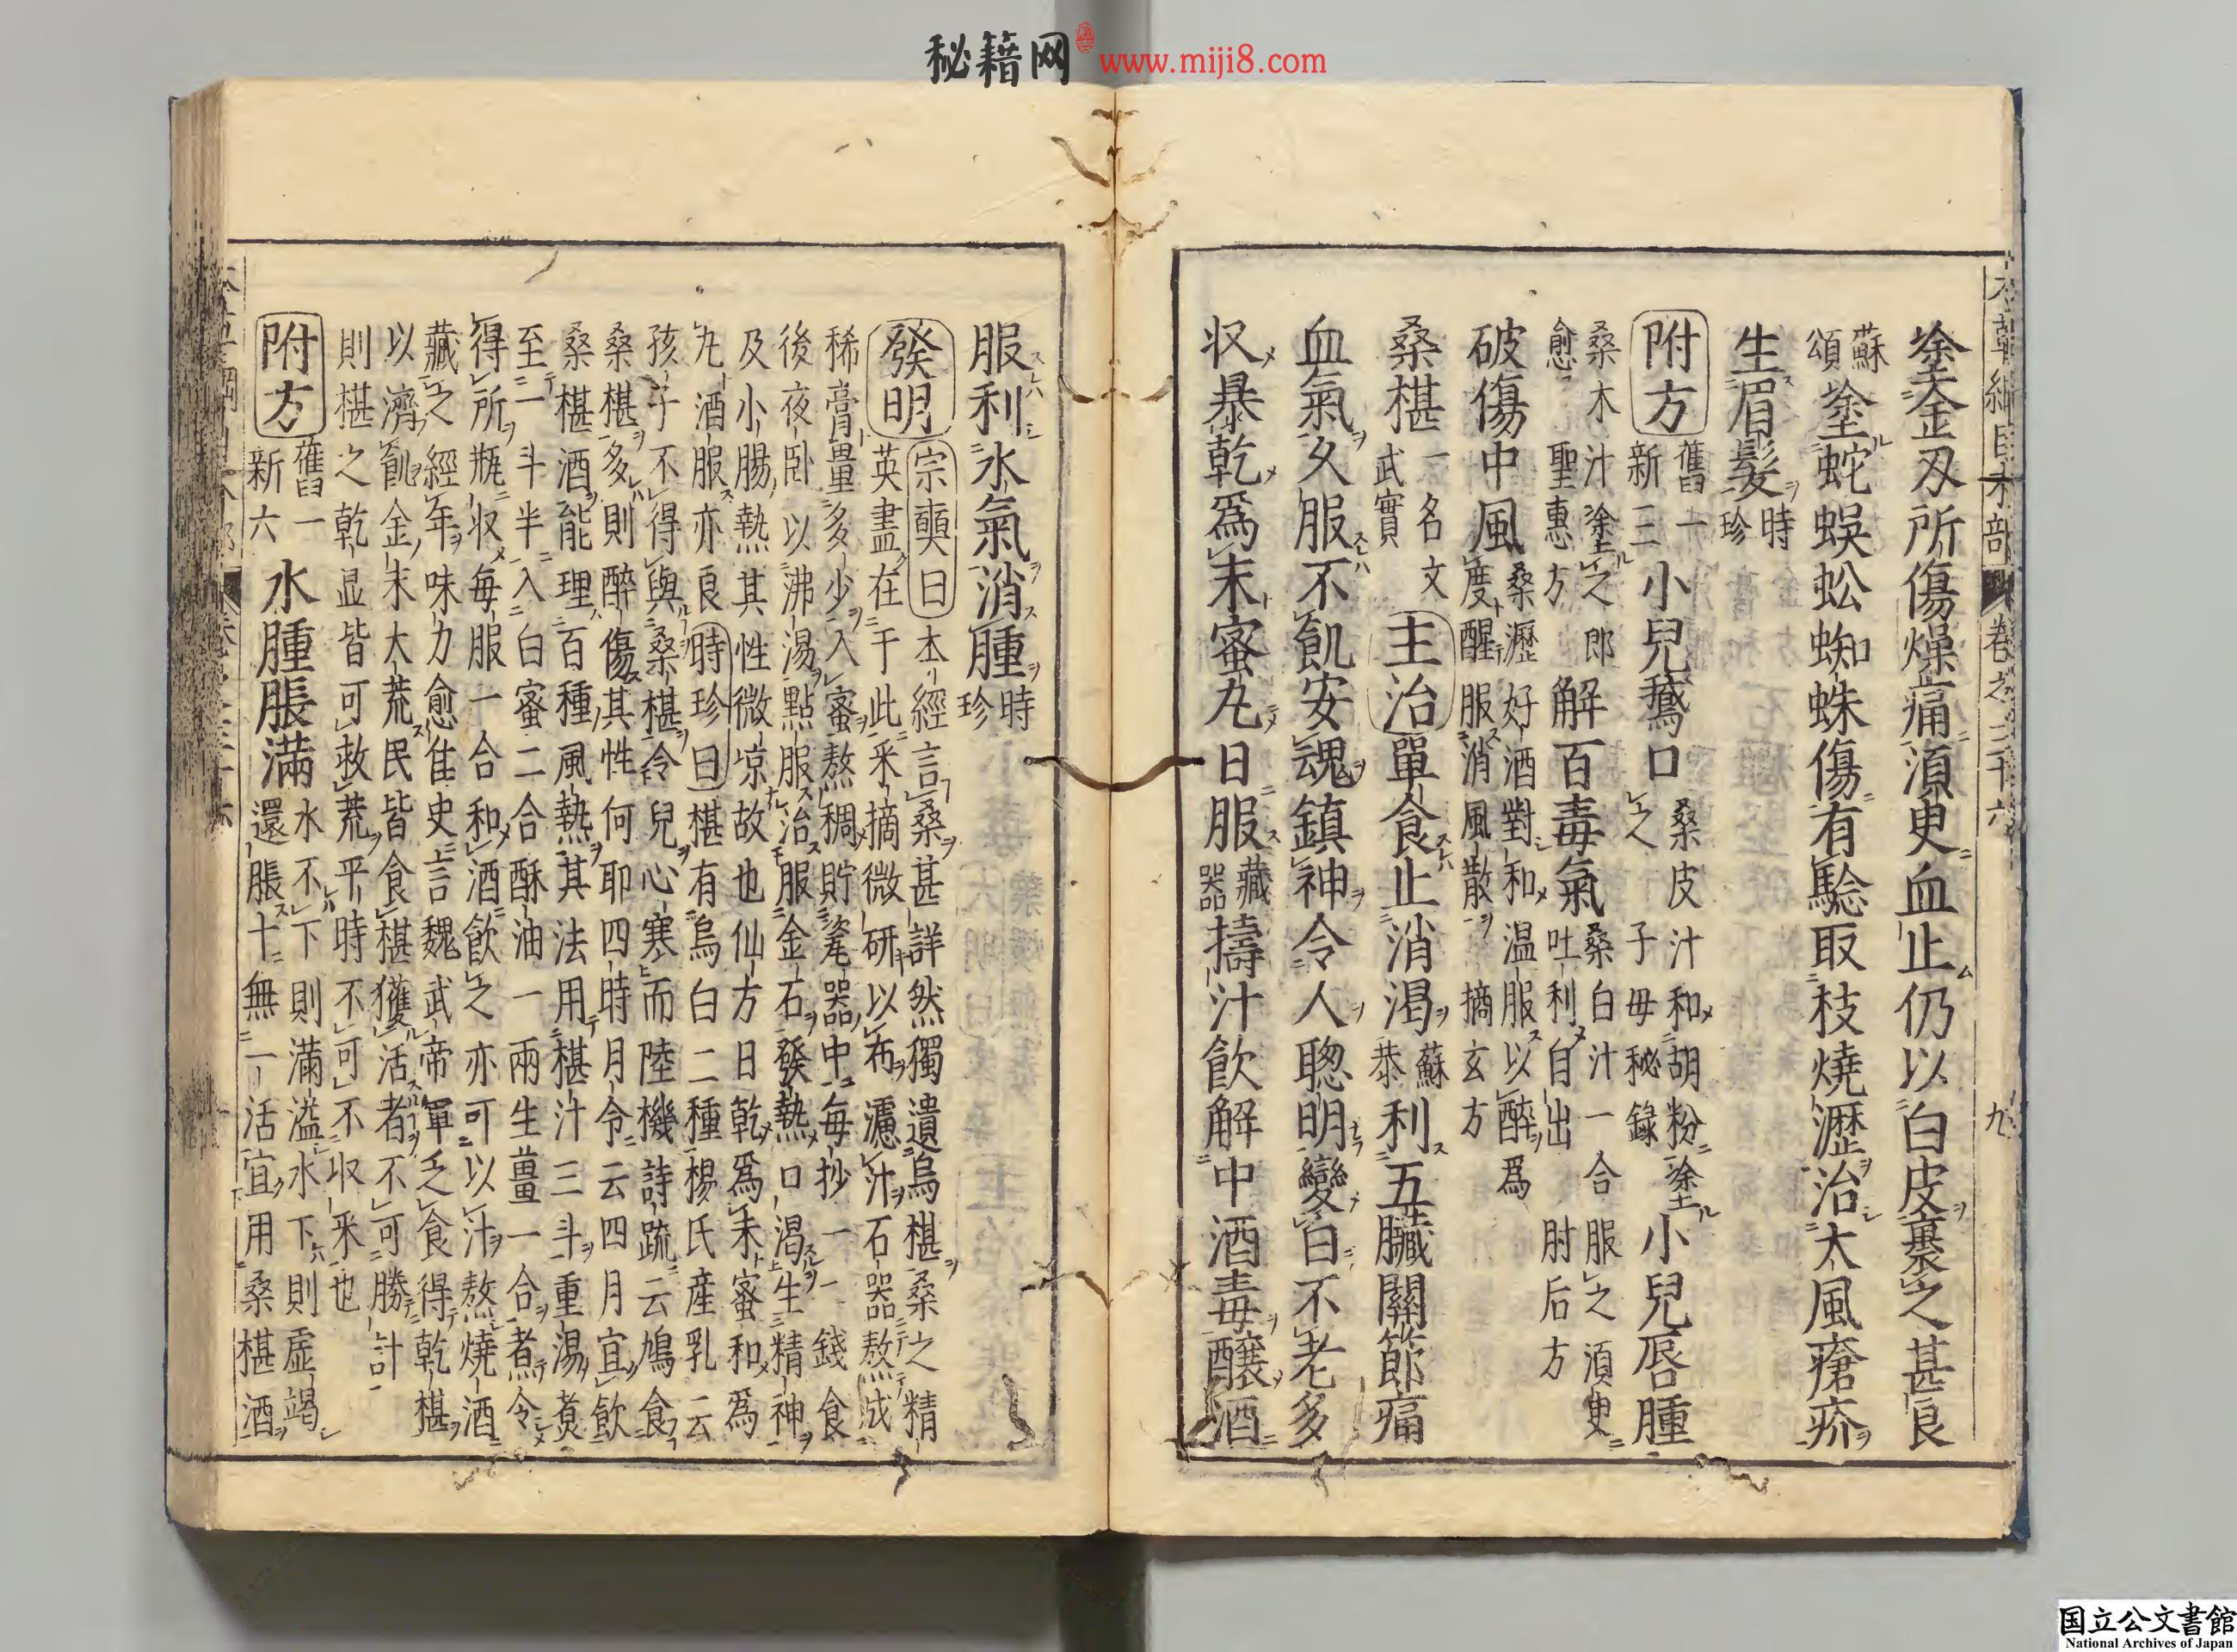 秘籍网 www.miji8.com
本草綱目木部 卷之三十六 九
塗金刃所傷燥痛須臾血止仍以白皮裹之甚良
蘇頌塗蛇蜈蚣蜘蛛傷有驗取枝燒瀝治大風瘡疥
生眉髮時珍
附方 舊一新三 小兒鵝口 桑皮汁和胡粉塗之子母秘録 小兒唇腫
桑木汁塗之郎愈聖惠方 解百毒氣 桑白汁一合服之須臾吐利自出肘后方
破傷中風 桑瀝好酒對和温服以醉爲度醒服消風散摘玄方
桑椹一名文武實 主治 單食止消渴蘇恭利五臟關節痛
血氣久服不飢安魂鎮神令人聦明變白不老多
収暴乾爲末蜜丸日服藏器擣汁飲解中酒毒醸酒
服利水氣消腫時珍
發明 宗奭曰 本經言桑甚詳然獨遺烏椹桑之精
英盡在于此采摘微研以布濾汁石器熬成
稀膏量多少入蜜熬稠貯瓷器中每抄一二錢食
後夜卧以沸湯點服治服金石發熱口渴生精神
及小腸熱其性微凉故也仙方日乾爲末蜜和爲
丸酒服亦良 時珍曰 椹有烏白二種楊氏産乳云
孩子不得與桑椹令兒心寒而陸機詩疏云鳩食
桑椹多則醉傷其性何耶四時月令云四月宜飲
桑椹酒能理百種風熱其法用椹汁三斗重湯煑
至一斗半入白蜜二合酥油一兩生薑一合煮令
得所瓶収每服一合和酒飲之亦可以汁熬燒酒
藏之經年味力愈佳史言魏武帝軍乏食得乾椹
以濟飢金末大荒民皆食椹獲活者不可勝計
則椹之乾湿皆可救荒平時不可不収采也
附方 舊一新六 水腫脹滿 水不下則滿溢水下則虚竭還脹十無一活宜用桑椹酒
国立公文書館
National Archives of Japan